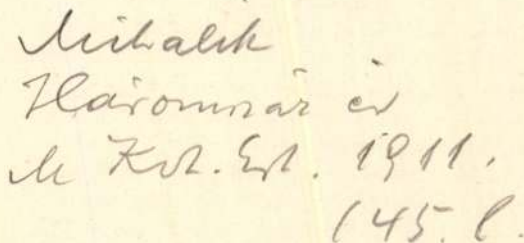 Mihalik
Háromvár év
M Kvt. Ért. 1911.
145. l.